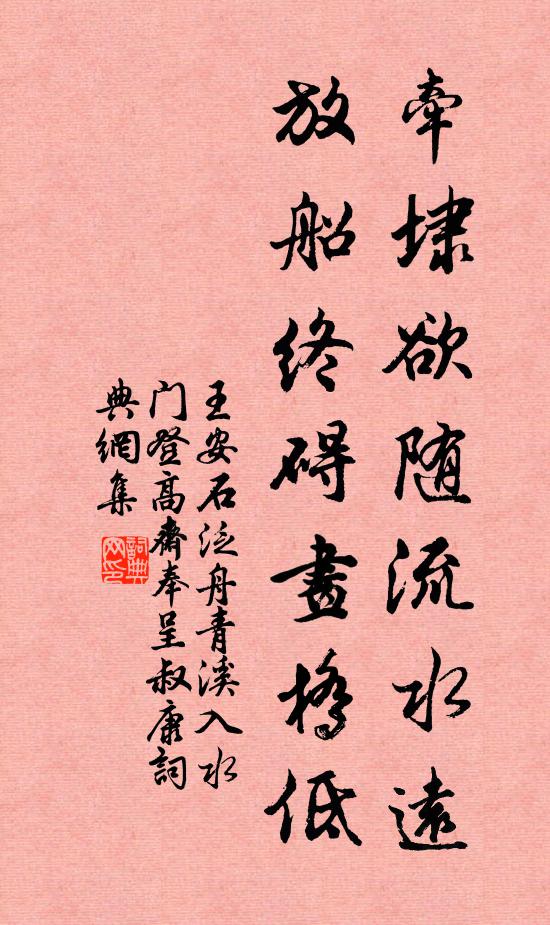 牽埭欲随流水遠
放船终碍畫橋低
王安石泛舟青溪入水
门登高齋奉呈叔康詞
典網集
詞典網印